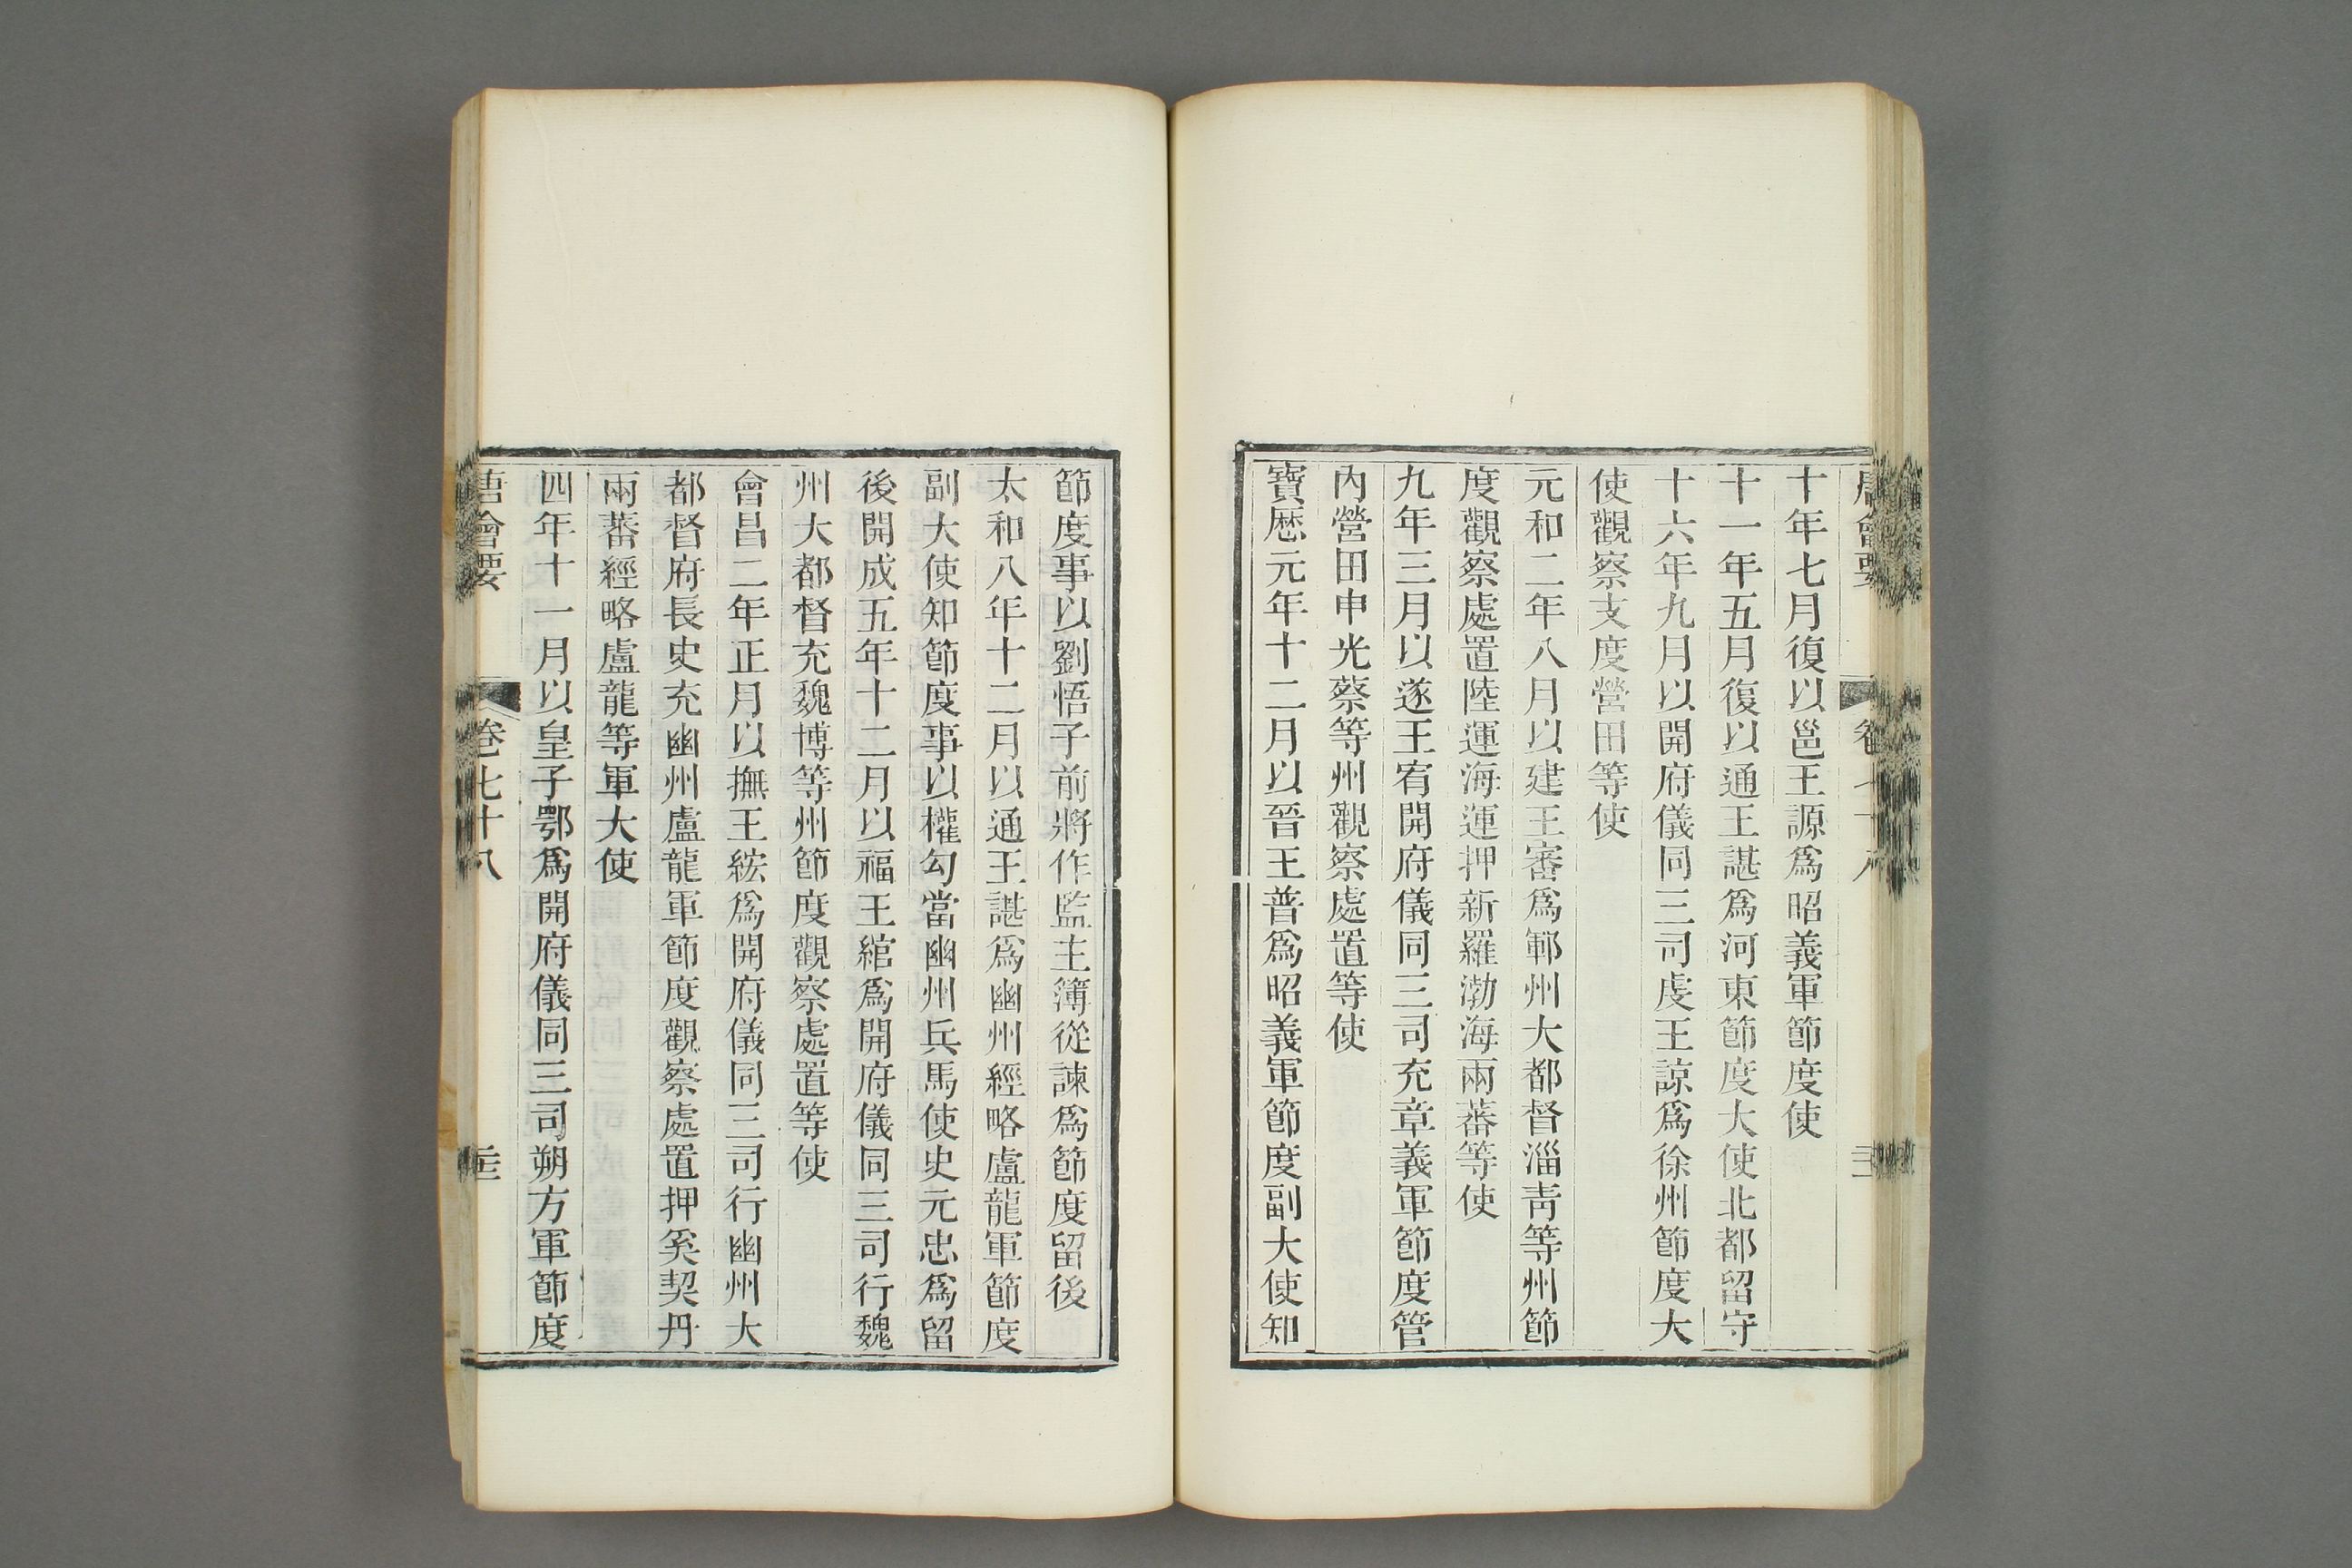 唐會要 卷七十八
十年七月復以邕王謜爲昭義軍節度使
十一年五月復以通王諶爲河東節度大使北都留守
十六年九月以開府儀同三司虔王諒爲徐州節度大
使觀察支度營田等使
元和二年八月以建王審爲鄆州大都督淄靑等州節
度觀察處置陸運海運押新羅渤海兩蕃等使
九年三月以遂王宥開府儀同三司充章義軍節度管
內營田申光蔡等州觀察處置等使
寶厯元年十二月以晉王普爲昭義軍節度副大使知
節度事以劉悟子前將作監主簿從諫爲節度留後
太和八年十二月以通王諶爲幽州經略盧龍軍節度
副大使知節度事以權勾當幽州兵馬使史元忠爲留
後開成五年十二月以福王綰爲開府儀同三司行魏
州大都督充魏博等州節度觀察處置等使
會昌二年正月以撫王紘爲開府儀同三司行幽州大
都督府長史充幽州盧龍軍節度觀察處置押奚契丹
兩蕃經略盧龍等軍大使
四年十一月以皇子鄂爲開府儀同三司朔方軍節度
唐會要 卷七十八